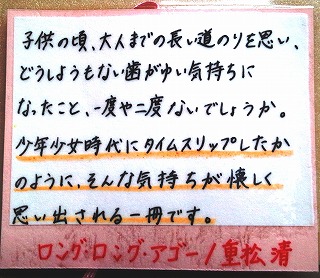 子供の頃、大人までの長い道のりを思い、
どうしようもない歯がゆい気持ちに
なったこと、一度や二度ないでしょうか。
少年少女時代にタイムスリップしたか
のように、そんな気持ちが懐しく
思い出される一冊です。
ロング・ロング・アゴー/重松清